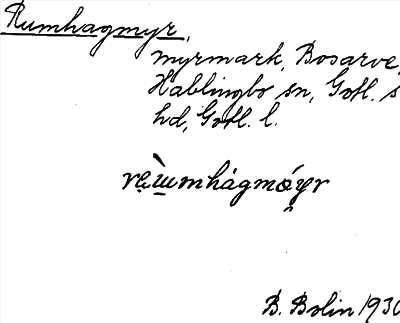 Rumhagmyr,
myrmark, Bosarve,
Hablingbo sn, Gotl. s
hd, Gotl. l.
B. Bolin 1930